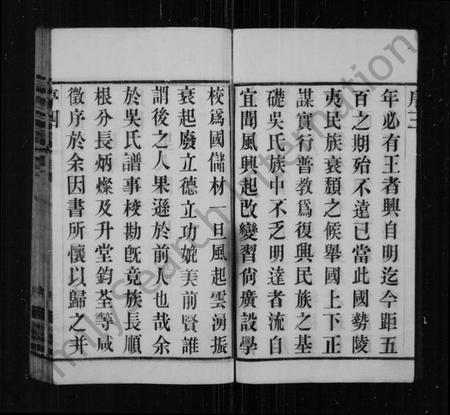 序三
年必有王者興自明迄今距五
百之期殆不遠已當此國勢陵
夷民族衰頹之候舉國上下正
謀實行普教爲復興民族之基
礎吳氏族中不乏明達者流自
宜聞風興起改變習尙廣設學
校爲國儲材一旦風起雲湧振
衰起廢立德立功媲美前賢誰
謂後之人果遜於前人也哉余
於吳氏譜事校勘旣竟族長順
根分長炳燦及升堂鈞荃等咸
徵序於余因書所懷以歸之并
FamilySearch International